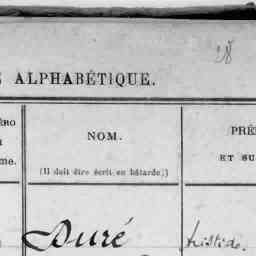 28
ALPHABÉTIQUE.
NOM.
(Il doit être écrit en bâtarde.)
PRÉ
ET SU
ÉRO
me.
Duré Aristide.